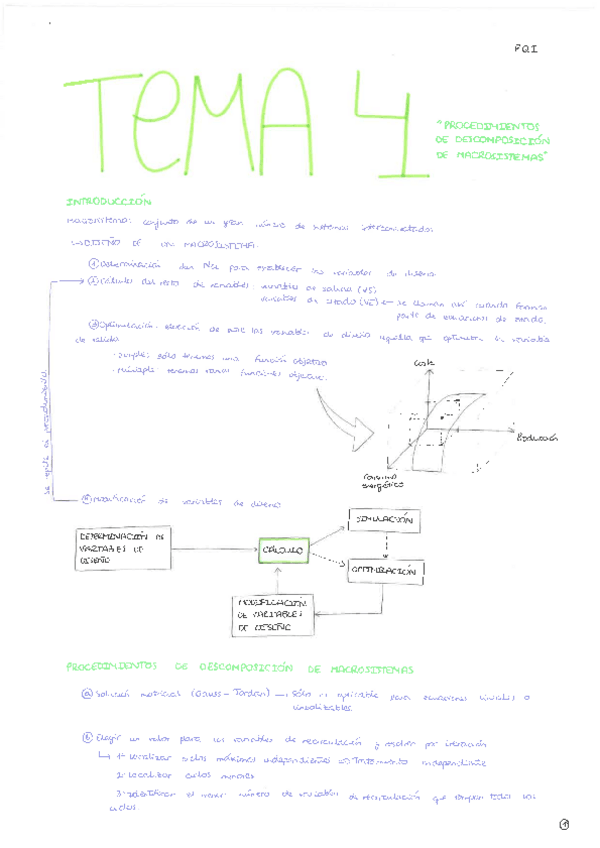 PQI
TEMA 4
"PROCEDIMIENTOS
DE DESCOMPOSICIÓN
DE MACROSISTEMAS"
INTRODUCCIÓN
Macrosistema: conjunto de un gran número de sistemas interconectados
DISEÑO DE UN MACROSISTEMA:
① Determinación del para establecer las variables de diseño
② Cálculo del resto de variables: variables de salida (VS)
variables de estado se llaman así cuando forman
parte de ecuaciones de estado.
③ Optimización: elección de las variables de diseño aquella que optimiza la variable
de salida
· simple: sólo tenemos una función objetivo
· múltiple: tenemos varias funciones objetivo.
Coste
Producción
Consumo
energético
④ Modificación de variables de diseño
DETERMINACIÓN DE
VARIABLES DE
DISEÑO
CÁLCULO
SIMULACIÓN
OPTIMIZACIÓN
MODIFICACIÓN
DE VARIABLES
DE DISEÑO
PROCEDIMIENTOS DE DESCOMPOSICIÓN DE MACROSISTEMAS
ⓐ Solución matricial (Gauss-Jordan) → sólo es aplicable para ecuaciones lineales o
linealizables.
ⓑ Elegir un valor para las variables de recirculación y resolver por iteración
1º Localizar ciclos máximos independientes Tratamiento independiente
2º Localizar ciclos menores
3º Identificar el menor número de variables de recirculación que rompan todos los
ciclos
①